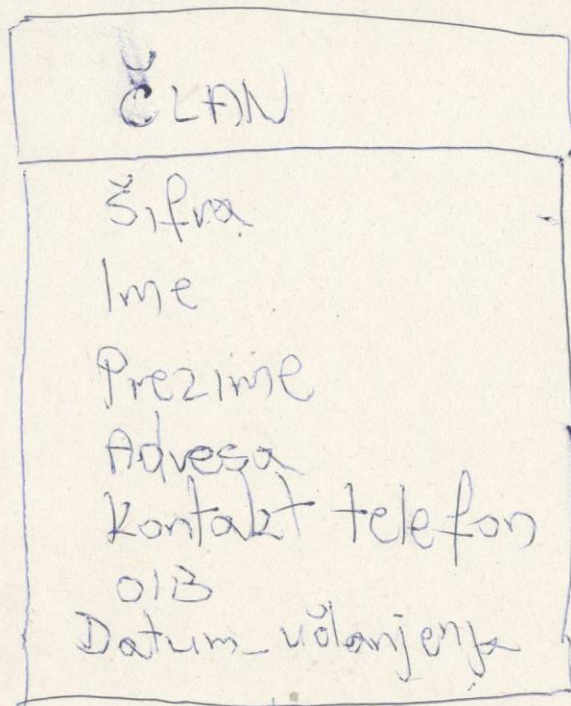 ČLAN
Šifra
Ime
Prezime
Adresa
Kontakt telefon
OIB
Datum_učlanjenja